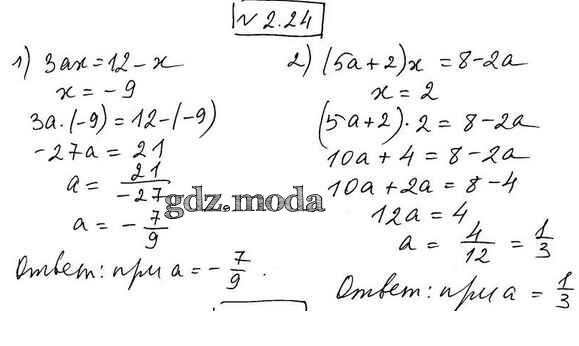 № 2.24
1) 3ax = 12 - x
x = - 9
3a·(-9) = 12-(-9)
-27a = 21
a = 21/-27
a = - 7/9
Ответ: при a = - 7/9.
2) (5a+2)x = 8-2a
x = 2
(5a+2)·2 = 8-2a
10a + 4 = 8-2a
10a + 2a = 8-4
12a = 4
a = 4/12 = 1/3
Ответ: при a = 1/3
gdz.moda